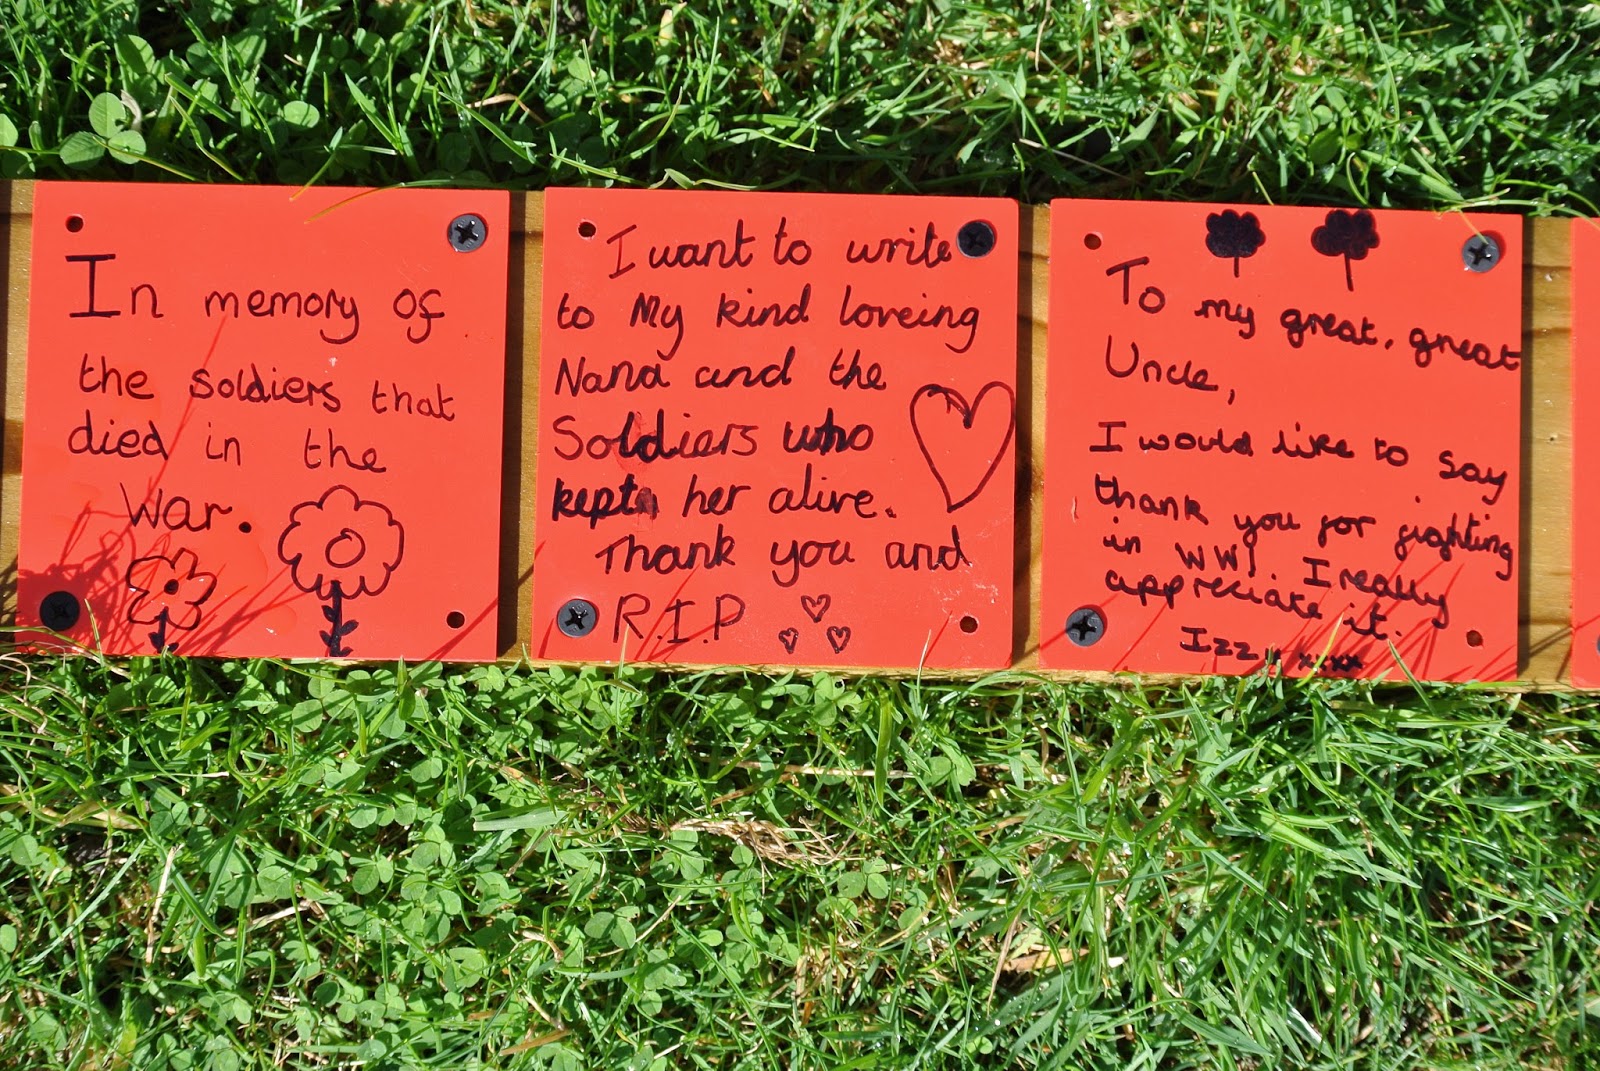 In memory of
the soldiers that
died in the
war.
I want to write
to My kind loveing
Nana and the
Soldiers who
kept her alive.
Thank you and
R.I.P
To my great, great
Uncle,
I would like to say
thank you for fighting
in WW1 I really
appreciate it.
Izzy xxxx